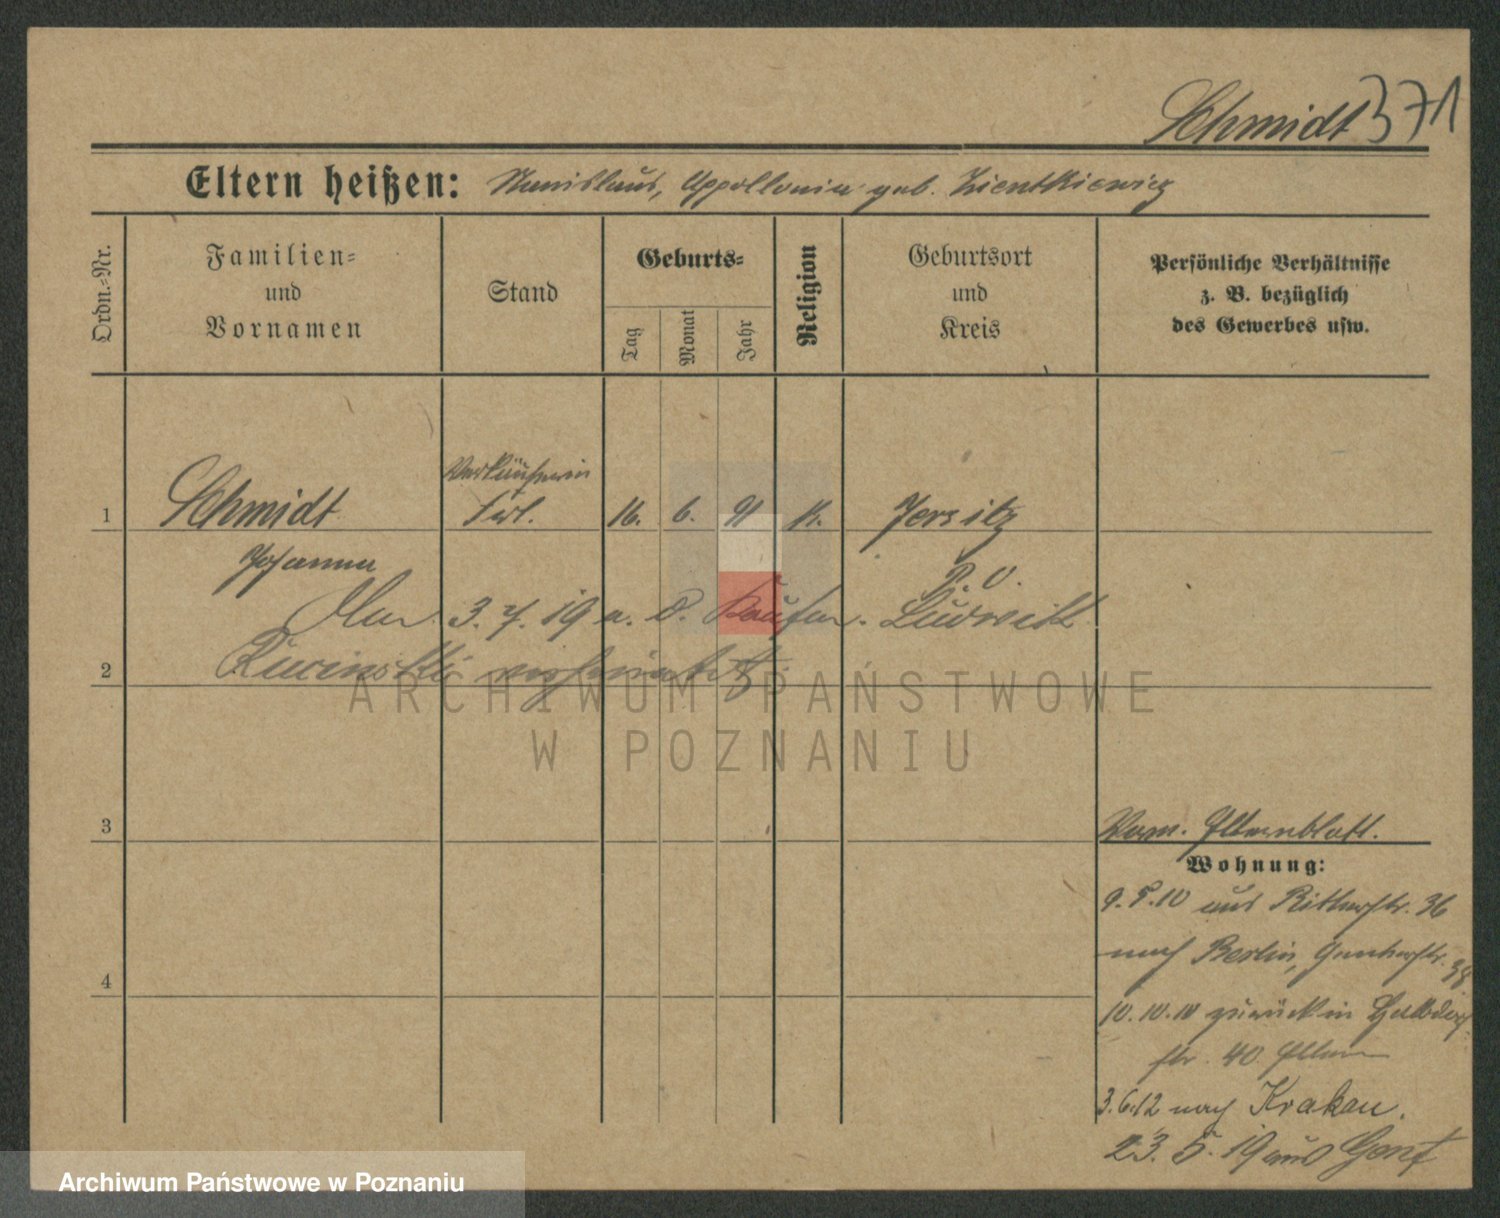 Schmidt 371
Eltern heißen: Stanislaus, Appollonia geb. Zientkiewicz
Ordn.-Nr.
Familien-
und
Vornamen
Stand
Geburts-
Tag
Monat
Jahr
Religion
Geburtsort
und
Kreis
Persönliche Verhältnisse
z. B. bezüglich
des Gewerbes usw.
Verkäuferin
1 Schmidt 16. 6. 91 k. Jersitz
Johanna P. O.
3. 7. 19 a. d. Kaufm. Ludwik
2 verheiratet
ARCHIWUM PAŃSTWOWE
W POZNANIU
3 Vom. Elternblatt.
Wohnung:
9.5.10 aus Ritterstr. 36
4 nach Berlin, 38
10.10.10 zurück in
str. 40. Eltern
3.6.12 nach Krakau.
23. 5. 19 aus Genf
Archiwum Państwowe w Poznaniu